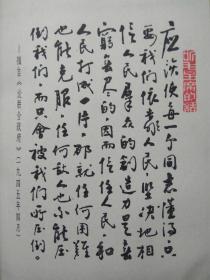 应该使每一个同志懂得,只
要我们依靠人民,坚决地相
信人民群众的创造力是無
窮無尽的,因而信任人民,和
人民打成一片,那就任何困難
也能克服,任何敌人也不能压
倒我们,而只會被我们所压倒。
—摘自《论联合政府》(一九四五年四月)